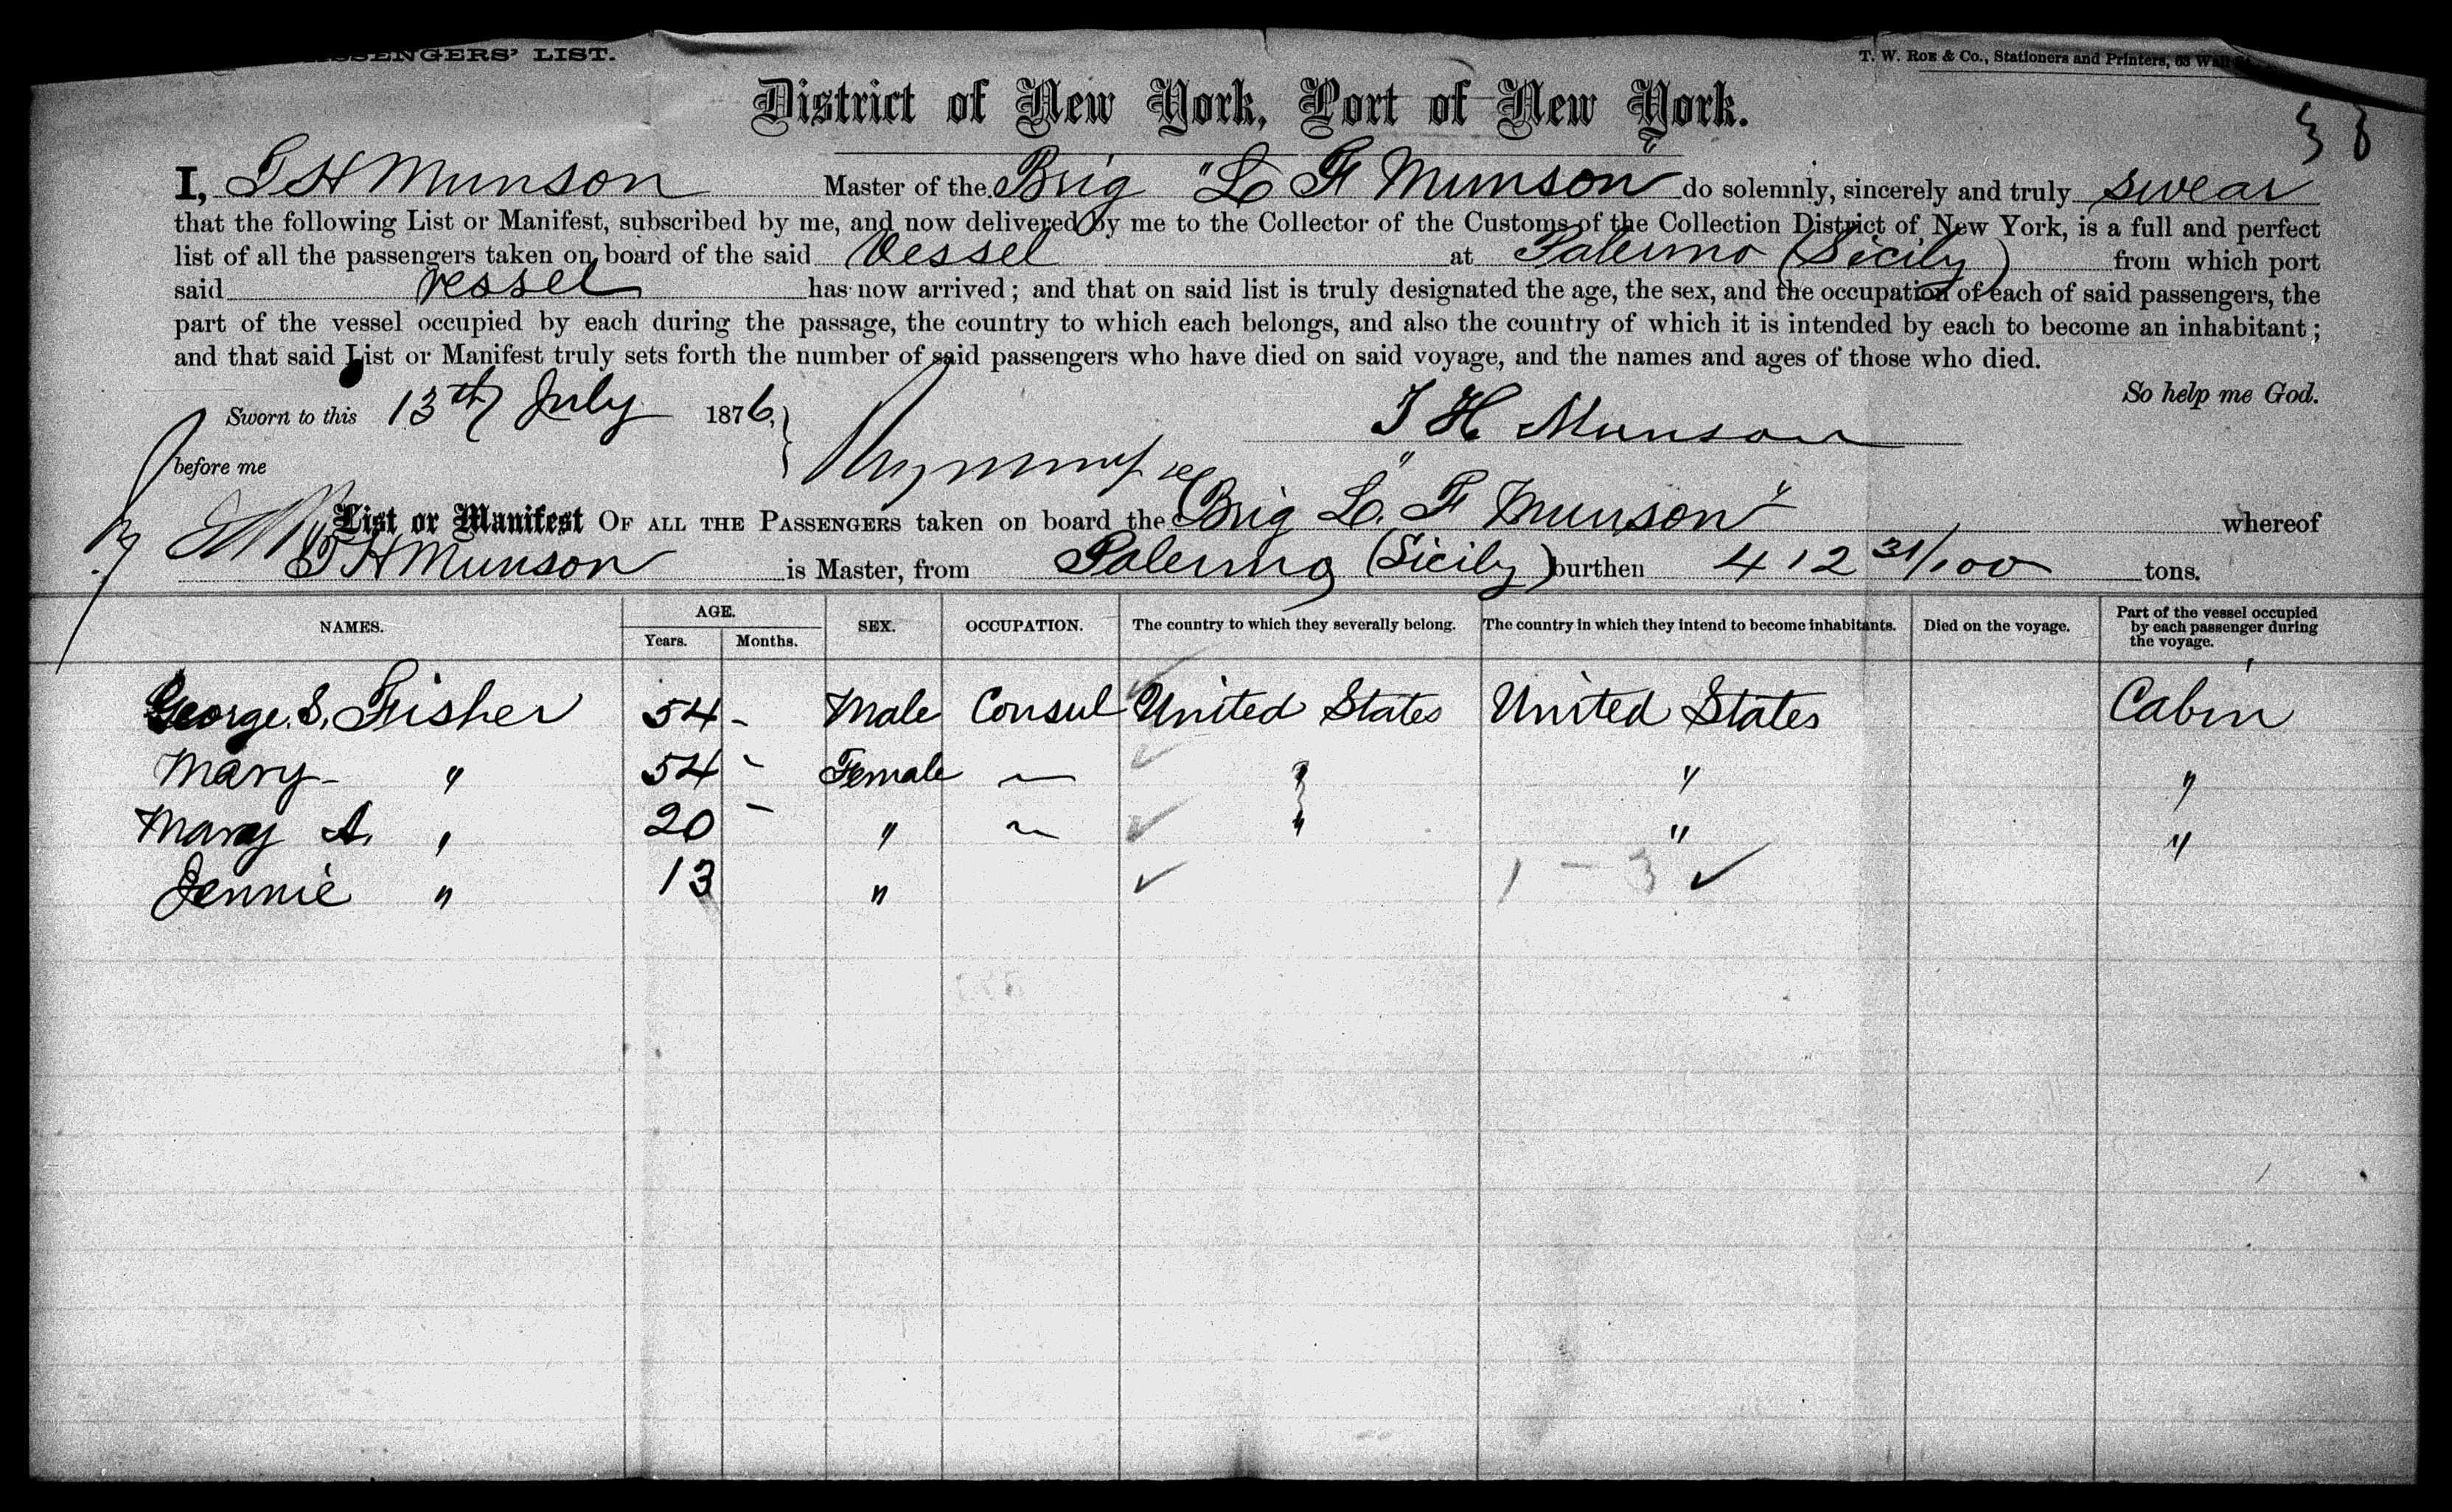 PASSENGERS' LIST.
T. W. Roe & Co., Stationers and Printers, 63 Wall
District of New York, Port of New York.
I, T H Munson Master of the Brig "L F Munson" do solemnly, sincerely and truly swear
that the following List or Manifest, subscribed by me, and now delivered by me to the Collector of the Customs of the Collection District of New York, is a full and perfect
list of all the passengers taken on board of the said Vessel at Palermo (Sicily) from which port
said vessel has now arrived; and that on said list is truly designated the age, the sex, and the occupation of each of said passengers, the
part of the vessel occupied by each during the passage, the country to which each belongs, and also the country of which it is intended by each to become an inhabitant;
and that said List or Manifest truly sets forth the number of said passengers who have died on said voyage, and the names and ages of those who died.
So help me God.
Sworn to this 13th July 1876,
T H Munson
before me
List or Manifest OF ALL THE PASSENGERS taken on board the Brig "L. F Munson" whereof
T H Munson is Master, from Palermo (Sicily) burthen 412 31/100 tons.
NAMES. AGE. Years. Months. SEX. OCCUPATION. The country to which they severally belong. The country in which they intend to become inhabitants. Died on the voyage. Part of the vessel occupied by each passenger during the voyage.
George. S. Fisher 54 - Male Consul United States United States Cabin
Mary - " 54 - Female — " " "
Mary A. " 20 - " — " " "
Jennie " 13 " 1 - 3 ✓